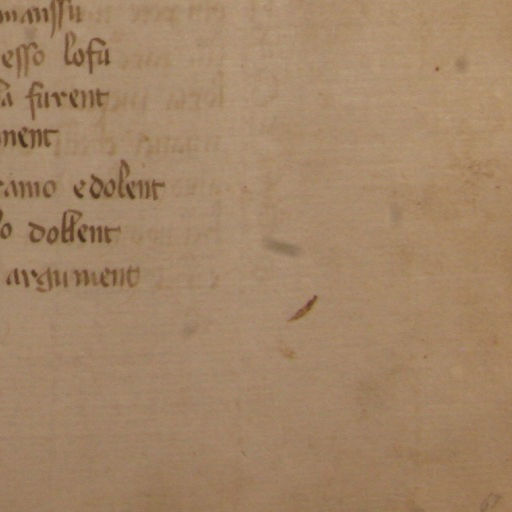 manssu
esso lofu
la furent
nent
ramo e dolent
lo dollent
argument